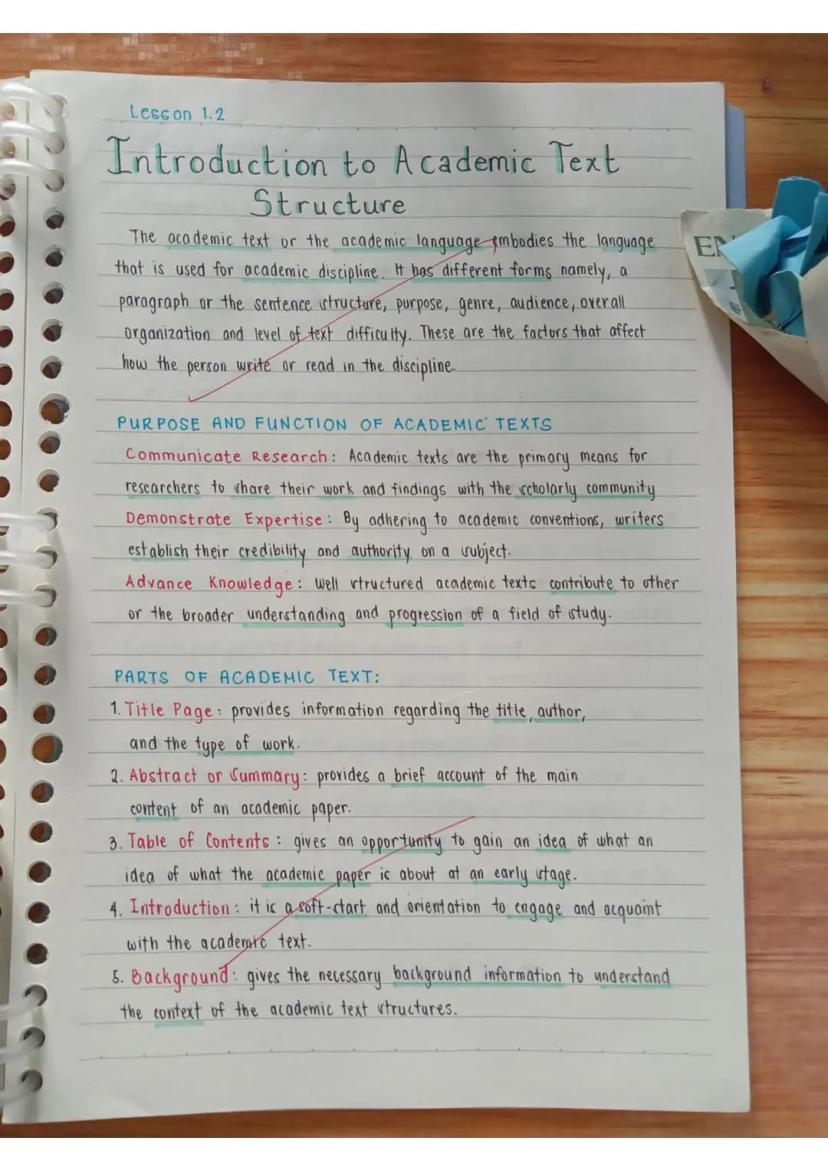 Lesson 1.2
Introduction to Academic Text
Structure
The academic text or the academic language embodies the language
that is used for academic discipline. It has different forms namely, a
paragraph or the sentence structure, purpose, genre, audience, overall
organization and level of text difficulty. These are the factors that affect
how the person write or read in the discipline.
PURPOSE AND FUNCTION OF ACADEMIC TEXTS
Communicate Research: Academic texts are the primary means for
researchers to share their work and findings with the scholarly community
Demonstrate Expertise: By adhering to academic conventions, writers
establish their credibility and authority on a subject.
Advance Knowledge: well structured academic texts contribute to other
or the broader understanding and progression of a field of study.
PARTS OF ACADEMIC TEXT:
1. Title Page: provides information regarding the title, author,
and the type of work.
2. Abstract or Summary: provides a brief account of the main
content of an academic paper.
3. Table of Contents: gives an opportunity to gain an idea of what an
idea of what the academic paper is about at an early stage.
4. Introduction: it is a soft-start and orientation to engage and acquaint
with the academic text.
5. Background: gives the necessary background information to understand
the context of the academic text structures.